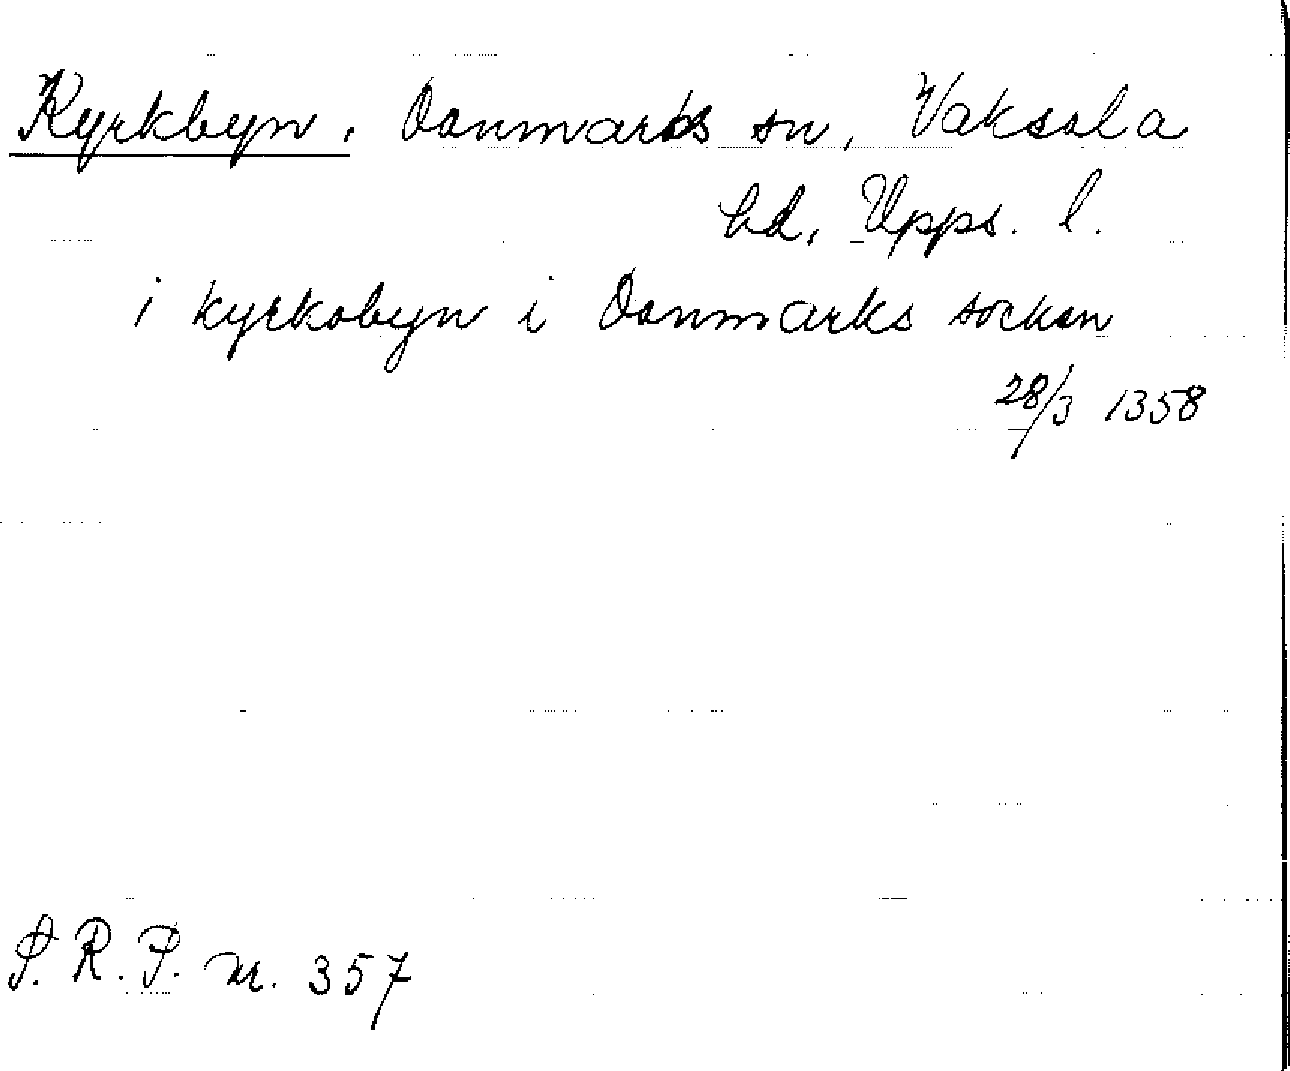 Kyrkbyn. Danmarks sn, Vaksala
hd, Upps. l.
i kyrkobyn i Danmarks socken
28/3 1358
S. R. P. nr. 357